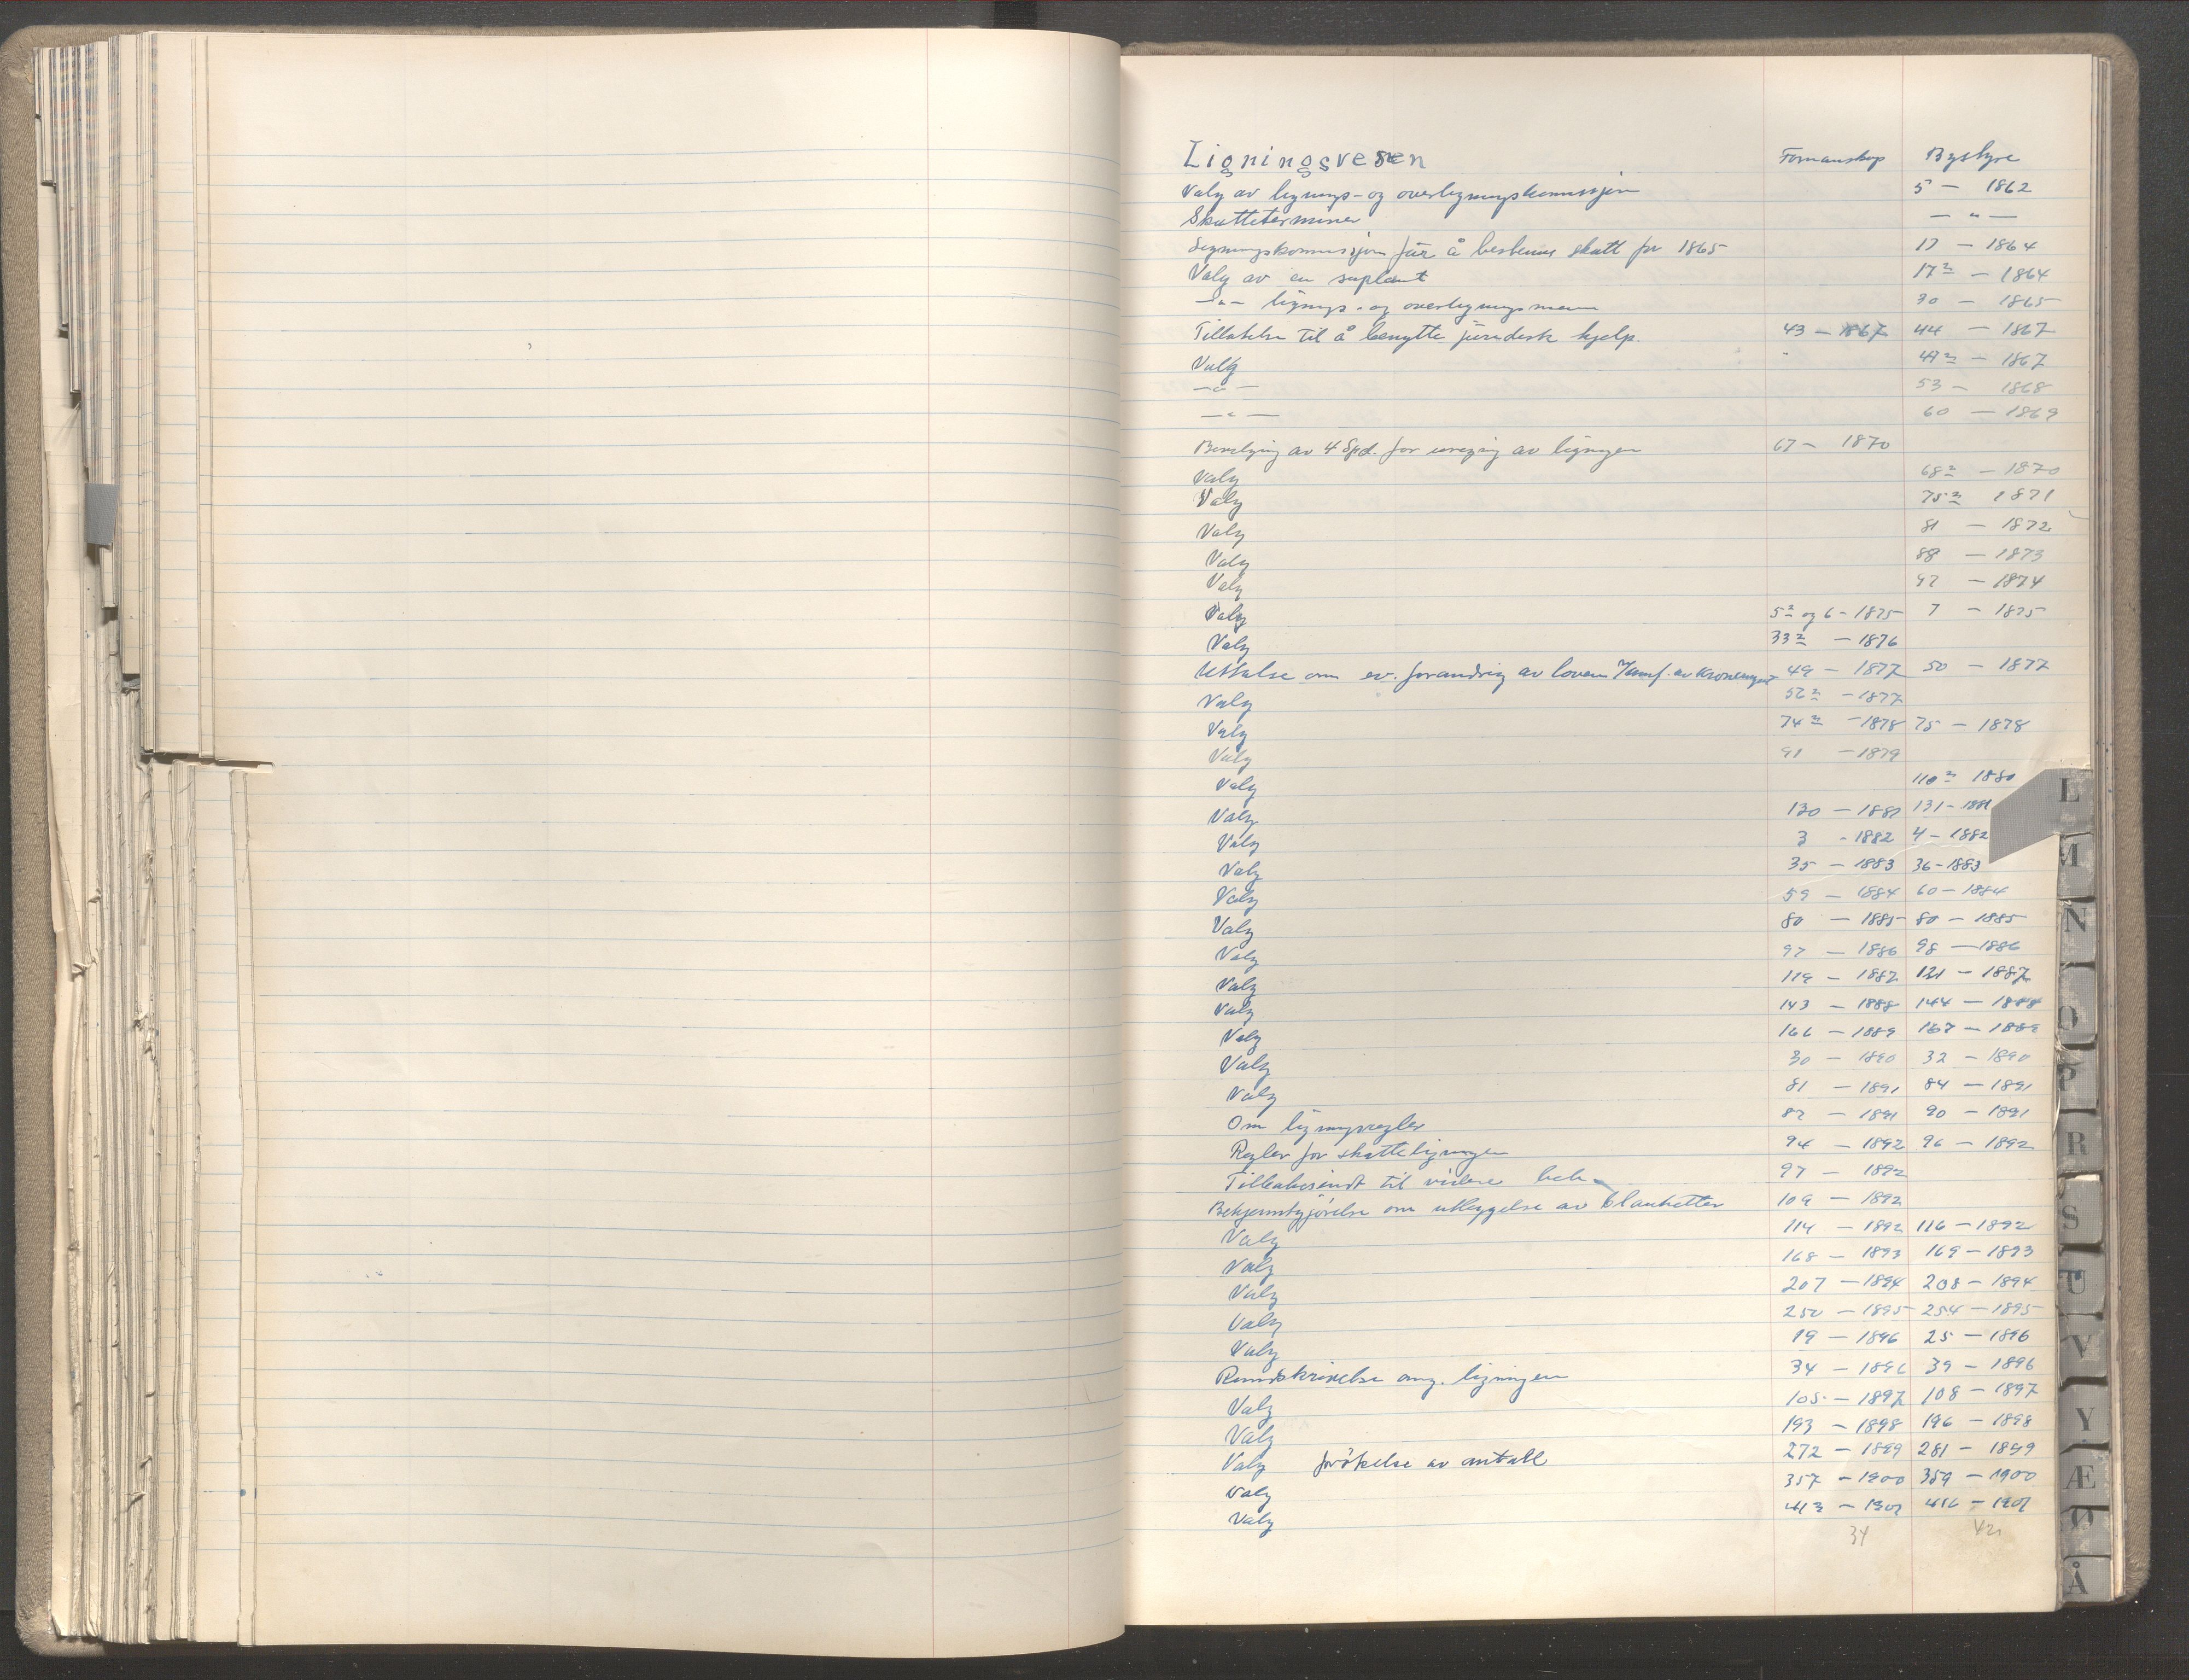 Ligningsvesen Formanskap Bystyre
Valg av lignings- og overligningskommisjon 5 — 1862
Skatteterminer — " —
Ligningskommisjon får å bestemme skatt for 1865 17 — 1864
Valg av en suplant 17 2 — 1864
—"— lignings- og overligningsmenn 30 — 1865
Tillatelse til å benytte juridisk hjelp. 43 — 1867 44 — 1867
Valg 49 2 — 1867
—"— 53 — 1868
—"— 60 — 1869
Bevilgning av 4 Spd. for av ligningen 67 — 1870
Valg 68 2 — 1870
Valg 75 2 1871
Valg 81 — 1872
Valg 88 — 1873
Valg 97 — 1874
Valg 5 2 og 6 - 1875 7 — 1875
Valg 33 2 — 1876
Uttalse om ev. forandring av loven 49 — 1877 50 — 1877
Valg 56 2 — 1877
Valg 74 2 — 1878 75 — 1878
Valg 91 — 1879
Valg 110 2 1880
Valg 130 — 1881 131 — 1881
Valg 3 - 1882 4 — 1882
Valg 35 — 1883 36 - 1883
Valg 59 — 1884 60 — 1884
Valg 80 — 1885 80 — 1885
Valg 97 — 1886 98 — 1886
Valg 119 — 1887 121 — 1887
Valg 143 — 1888 144 — 1888
Valg 166 — 1889 167 — 1889
Valg 30 — 1890 32 — 1890
Valg 81 — 1891 84 — 1891
Om ligningsregler 87 — 1891 90 — 1891
Regler for skatteligningen 94 — 1892 96 — 1892
Tilbakesendt til videre beh. 97 — 1892
Bekjenntgjörelse om utleggelse av blanketter 109 — 1892
Valg 114 — 1892 116 — 1892
Valg 168 — 1893 169 — 1893
Valg 207 — 1894 208 — 1894
Valg 250 — 1895 254 — 1895
Valg 19 — 1896 25 — 1896
Rundskrivelse ang. ligningen 34 — 1896 39 — 1896
Valg 105 — 1897 108 — 1897
Valg 193 — 1898 196 — 1898
Valg forökelse av antall 272 — 1899 281 — 1899
Valg 357 — 1900 359 — 1900
Valg 412 — 1901 416 — 1901
34 42
L
M
N
O
P
R
S
T U
V
Y
Æ
Ø
Å